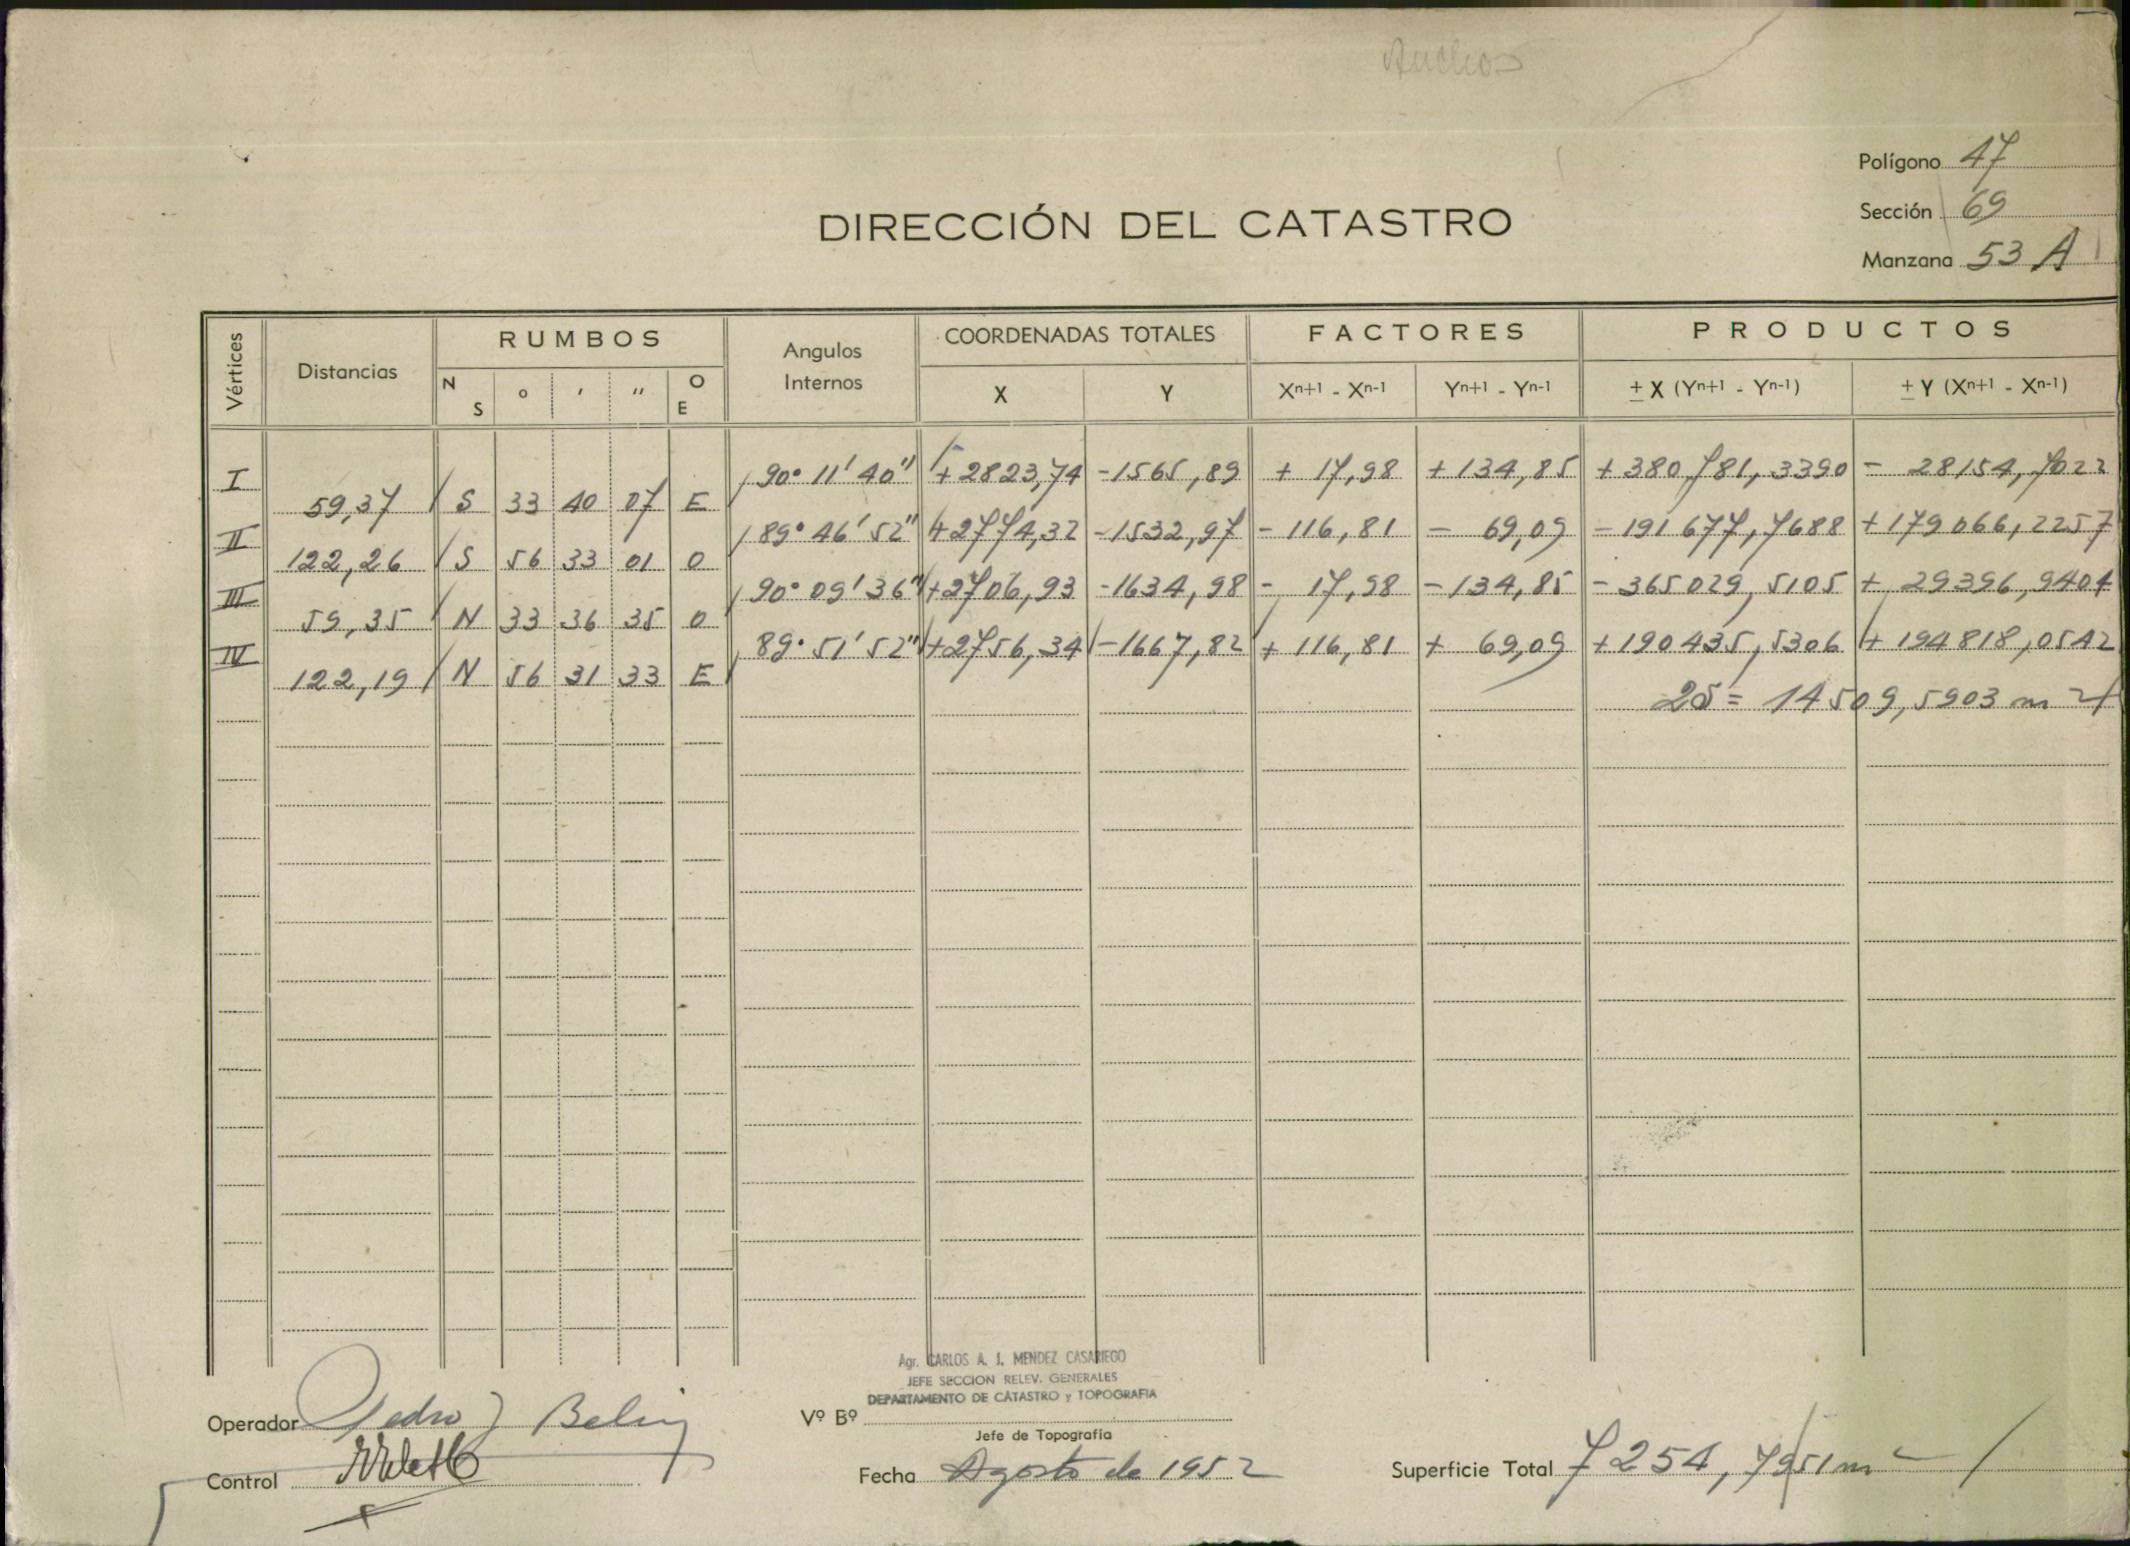 Anchos
Polígono 47
Sección 69
Manzana 53 A
DIRECCIÓN DEL CATASTRO
Vértices Distancias RUMBOS Angulos Internos COORDENADAS TOTALES FACTORES PRODUCTOS
N S ° ' " O E X Y Xn+1 - Xn-1 Yn+1 - Yn-1 ± X (Yn+1 - Yn-1) ± Y (Xn+1 - Xn-1)
I 90° 11' 40" +2823,74 -1565,89 + 17,98 +134,85 +380781,3390 - 28154,7022
59,37 S 33 40 07 E
II 89° 46' 52" +2774,32 -1532,97 -116,81 - 69,09 -191677,7688 +179066,2257
122,26 S 56 33 01 O
III 90° 09' 36" +2706,93 -1634,98 - 17,98 -134,85 -365029,5105 + 29396,9404
59,35 N 33 36 35 O
IV 89° 51' 52" +2756,34 -1667,82 + 116,81 + 69,09 +190435,5306 + 194818,0542
122,19 N 56 31 33 E
2S = 14509,5903 m 2
Agr. CARLOS A. J. MENDEZ CASARIEGO
JEFE SECCION RELEV. GENERALES
DEPARTAMENTO DE CATASTRO y TOPOGRAFIA
Operador Pedro J
Vº Bº
Jefe de Topografía
Control
Fecha Agosto de 1952
Superficie Total 7254,7951 m 2